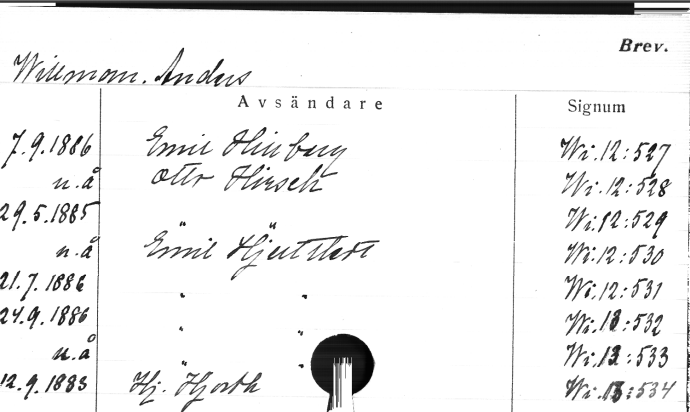 Brev.
Willeman. Anders
Avsändare Signum
7.9.1886 Emil Hirberg Wi.12:527
u.å Otto Hirsch Wi.12:528
29.5.1885 " " Wi.12:529
u.å Emil Hjertstedt Wi.12:530
21.7.1886 " " Wi.12:531
24.9.1886 " " Wi.13:532
u.å " " Wi.13:533
12.9.1883 Hj. Hjorth Wi.13:534